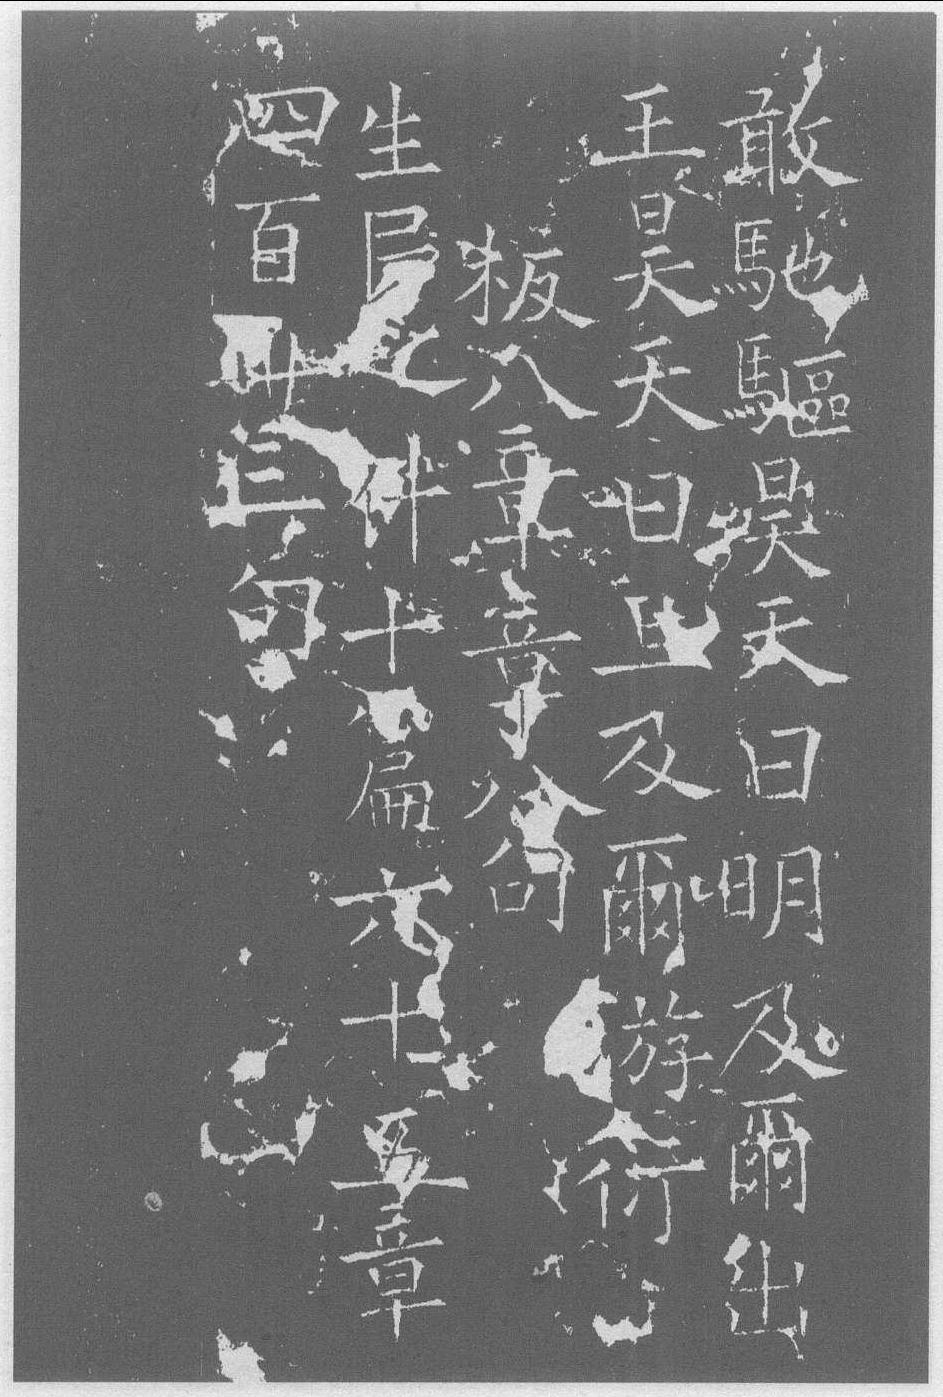 敢馳驅昊天曰明及爾出
王昊天曰旦及爾游衍
板八章章八句
生民之什十篇六十五章
四百卅三句